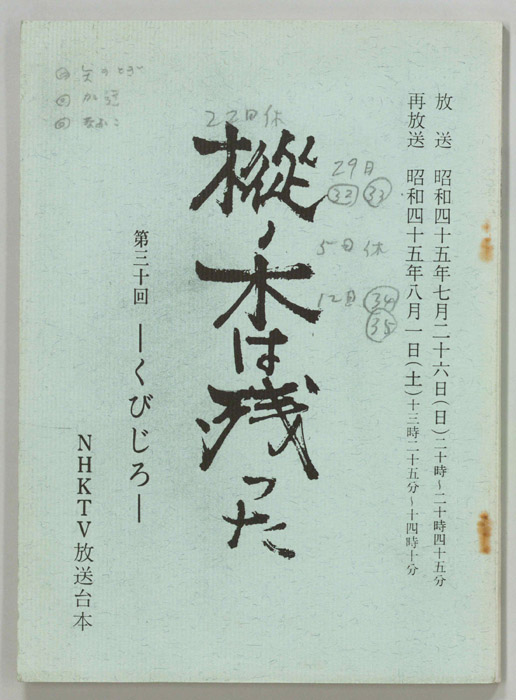 放送　昭和四十五年七月二十六日(日)二十時～二十時四十五分
再放送　昭和四十五年八月一日(土)十三時二十五分～十四時十分
29日
32 33
5日休
12日 34
35
22日休
樅ノ木は残った
第三十回　―くびじろ―
NHKTV放送台本